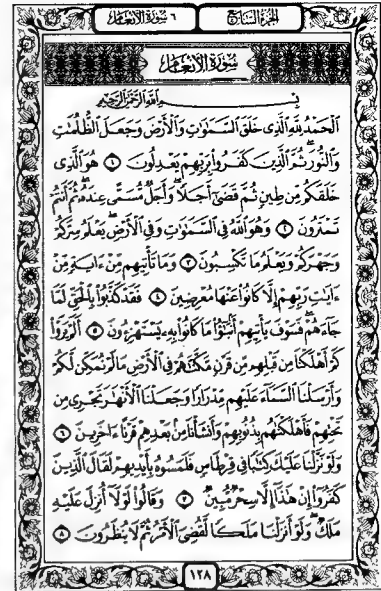 الجزء السابع
٦ سورة الأنعام
سُورَةُ الأَنْعَامِ
بِسْمِ ٱللَّهِ ٱلرَّحْمَٰنِ ٱلرَّحِيمِ
ٱلْحَمْدُ لِلَّهِ ٱلَّذِى خَلَقَ ٱلسَّمَٰوَٰتِ وَٱلْأَرْضَ وَجَعَلَ ٱلظُّلُمَٰتِ
وَٱلنُّورَ ۖ ثُمَّ ٱلَّذِينَ كَفَرُوا۟ بِرَبِّهِمْ يَعْدِلُونَ ١ هُوَ ٱلَّذِى
خَلَقَكُم مِّن طِينٍ ثُمَّ قَضَىٰٓ أَجَلًا ۖ وَأَجَلٌ مُّسَمًّى عِندَهُۥ ۖ ثُمَّ أَنتُمْ
تَمْتَرُونَ ٢ وَهُوَ ٱللَّهُ فِى ٱلسَّمَٰوَٰتِ وَفِى ٱلْأَرْضِ ۖ يَعْلَمُ سِرَّكُمْ
وَجَهْرَكُمْ وَيَعْلَمُ مَا تَكْسِبُونَ ٣ وَمَا تَأْتِيهِم مِّنْ ءَايَةٍ مِّنْ
ءَايَٰتِ رَبِّهِمْ إِلَّا كَانُوا۟ عَنْهَا مُعْرِضِينَ ٤ فَقَدْ كَذَّبُوا۟ بِٱلْحَقِّ لَمَّا
جَآءَهُمْ ۖ فَسَوْفَ يَأْتِيهِمْ أَنۢبَٰٓؤُا۟ مَا كَانُوا۟ بِهِۦ يَسْتَهْزِءُونَ ٥ أَلَمْ يَرَوْا۟
كَمْ أَهْلَكْنَا مِن قَبْلِهِم مِّن قَرْنٍ مَّكَّنَّٰهُمْ فِى ٱلْأَرْضِ مَا لَمْ نُمَكِّن لَّكُمْ
وَأَرْسَلْنَا ٱلسَّمَآءَ عَلَيْهِم مِّدْرَارًا وَجَعَلْنَا ٱلْأَنْهَٰرَ تَجْرِى مِن
تَحْتِهِمْ فَأَهْلَكْنَٰهُم بِذُنُوبِهِمْ وَأَنشَأْنَا مِنۢ بَعْدِهِمْ قَرْنًا ءَاخَرِينَ ٦
وَلَوْ نَزَّلْنَا عَلَيْكَ كِتَٰبًا فِى قِرْطَاسٍ فَلَمَسُوهُ بِأَيْدِيهِمْ لَقَالَ ٱلَّذِينَ
كَفَرُوٓا۟ إِنْ هَٰذَآ إِلَّا سِحْرٌ مُّبِينٌ ٧ وَقَالُوا۟ لَوْلَآ أُنزِلَ عَلَيْهِ
مَلَكٌ ۖ وَلَوْ أَنزَلْنَا مَلَكًا لَّقُضِىَ ٱلْأَمْرُ ثُمَّ لَا يُنظَرُونَ ٨
١٢٨